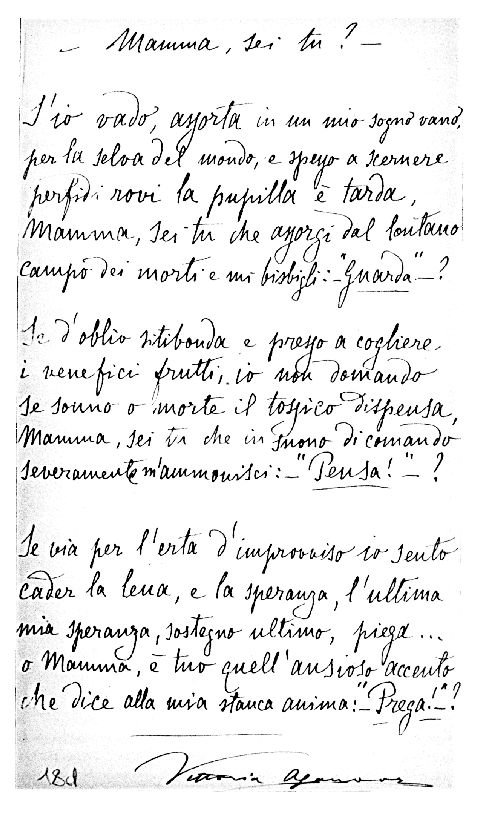 – Mamma, sei tu? –
S'io vado, assorta in un mio sogno vano,
per la selva del mondo, e spesso a scernere
perfidi rovi la pupilla è tarda,
Mamma, sei tu che assorgi dal lontano
campo dei morti e mi bisbigli: – "Guarda" – ?
Se d'oblio sitibonda e presso a cogliere
i venefici frutti, io non domando
se sonno o morte il tossico dispensa,
Mamma, sei tu che in suono di comando
severamente m'ammonisci: – "Pensa!" – ?
Se via per l'erta d'improvviso io sento
cader la lena, e la speranza, l'ultima
mia speranza, sostegno ultimo, piega...
o Mamma, è tuo quell'ansioso accento
che dice alla mia stanca anima: "– Prega! –"?
Vittoria Aganoor